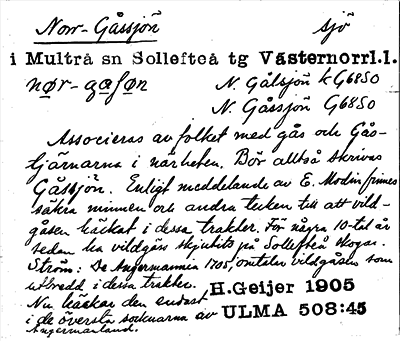 Norr-Gåssjöñ sjö
i Multrå sn Sollefteå tg Västernorrl.l.
nør-gåʃøn N. Gålsjöñ k G6850
N. Gåssjöñ G6850
Associeras av folket med gås och Gås-
tjärnarna i närheten. Bör alltså skrivas
Gåssjöñ. Enligt meddelande av E. Modin finnes
säkra minnen och andra tecken till att vild-
gåsen häckat i dessa trakter. För några 10-tal år
sedan ha vildgäss skjutits på Sollefteå skogar.
Ström: De Angermannia 1705, omtalar vildgåsen som
utbredd i dessa trakter. H.Geijer 1905
Nu häckar den endast
i de översta socknarna av ULMA 508:45
Ångermanland.